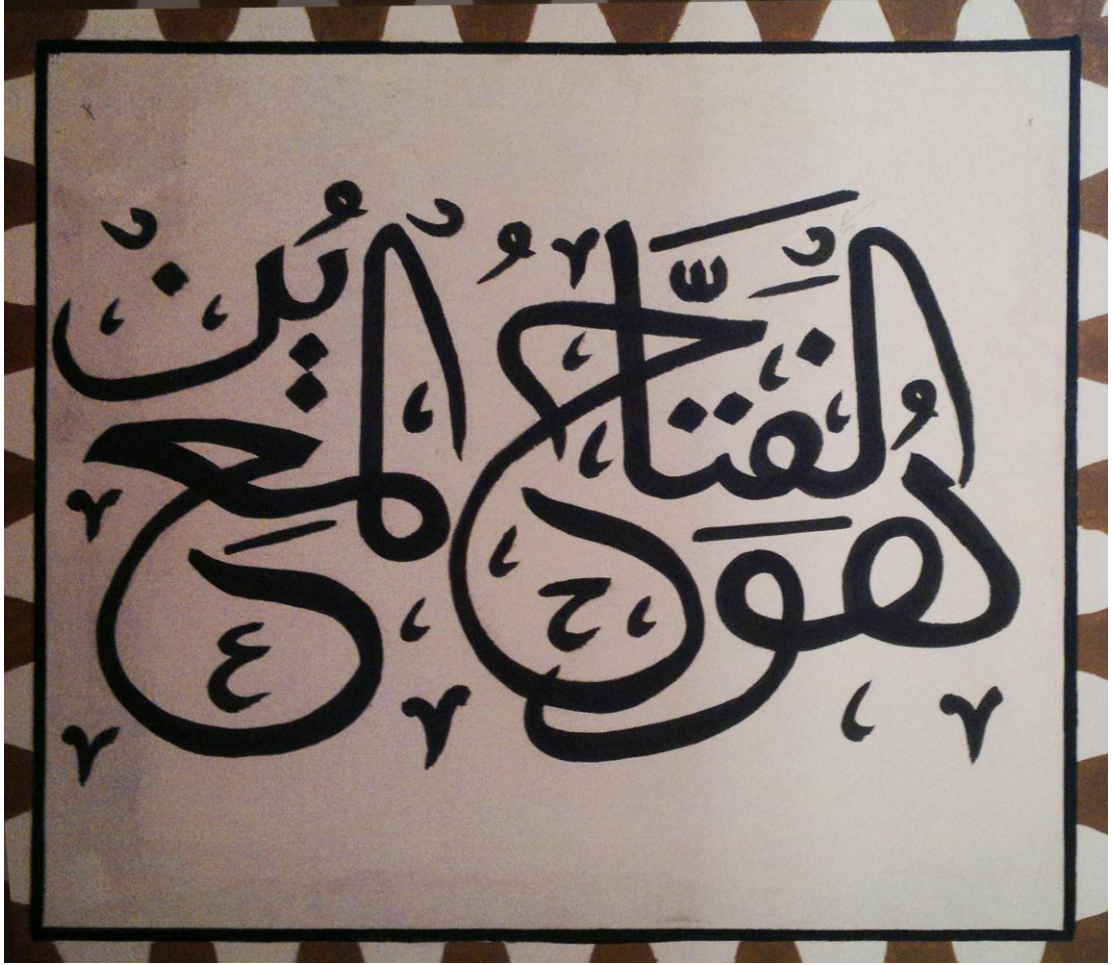 هُوَ الْفَتَّاحُ الْمُعِينْ